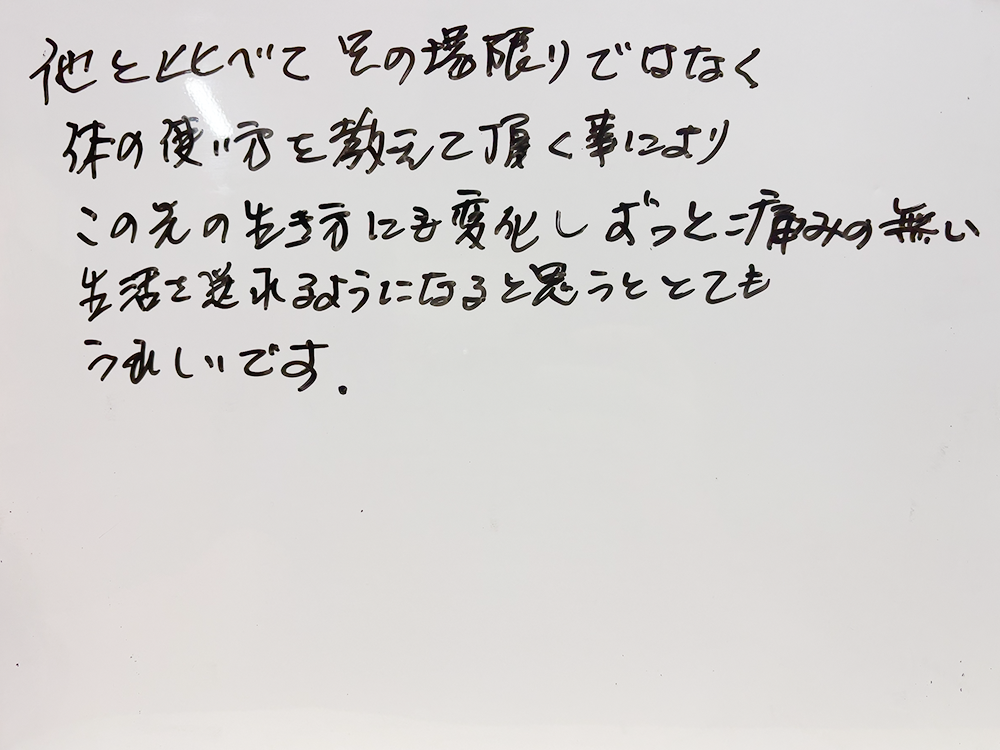 他と比べて その場限りではなく
体の使い方を教えて頂く事により
この先の生き方にも変化し ずっと痛みの無い
生活を送れるようになると思うと とても
うれしいです.